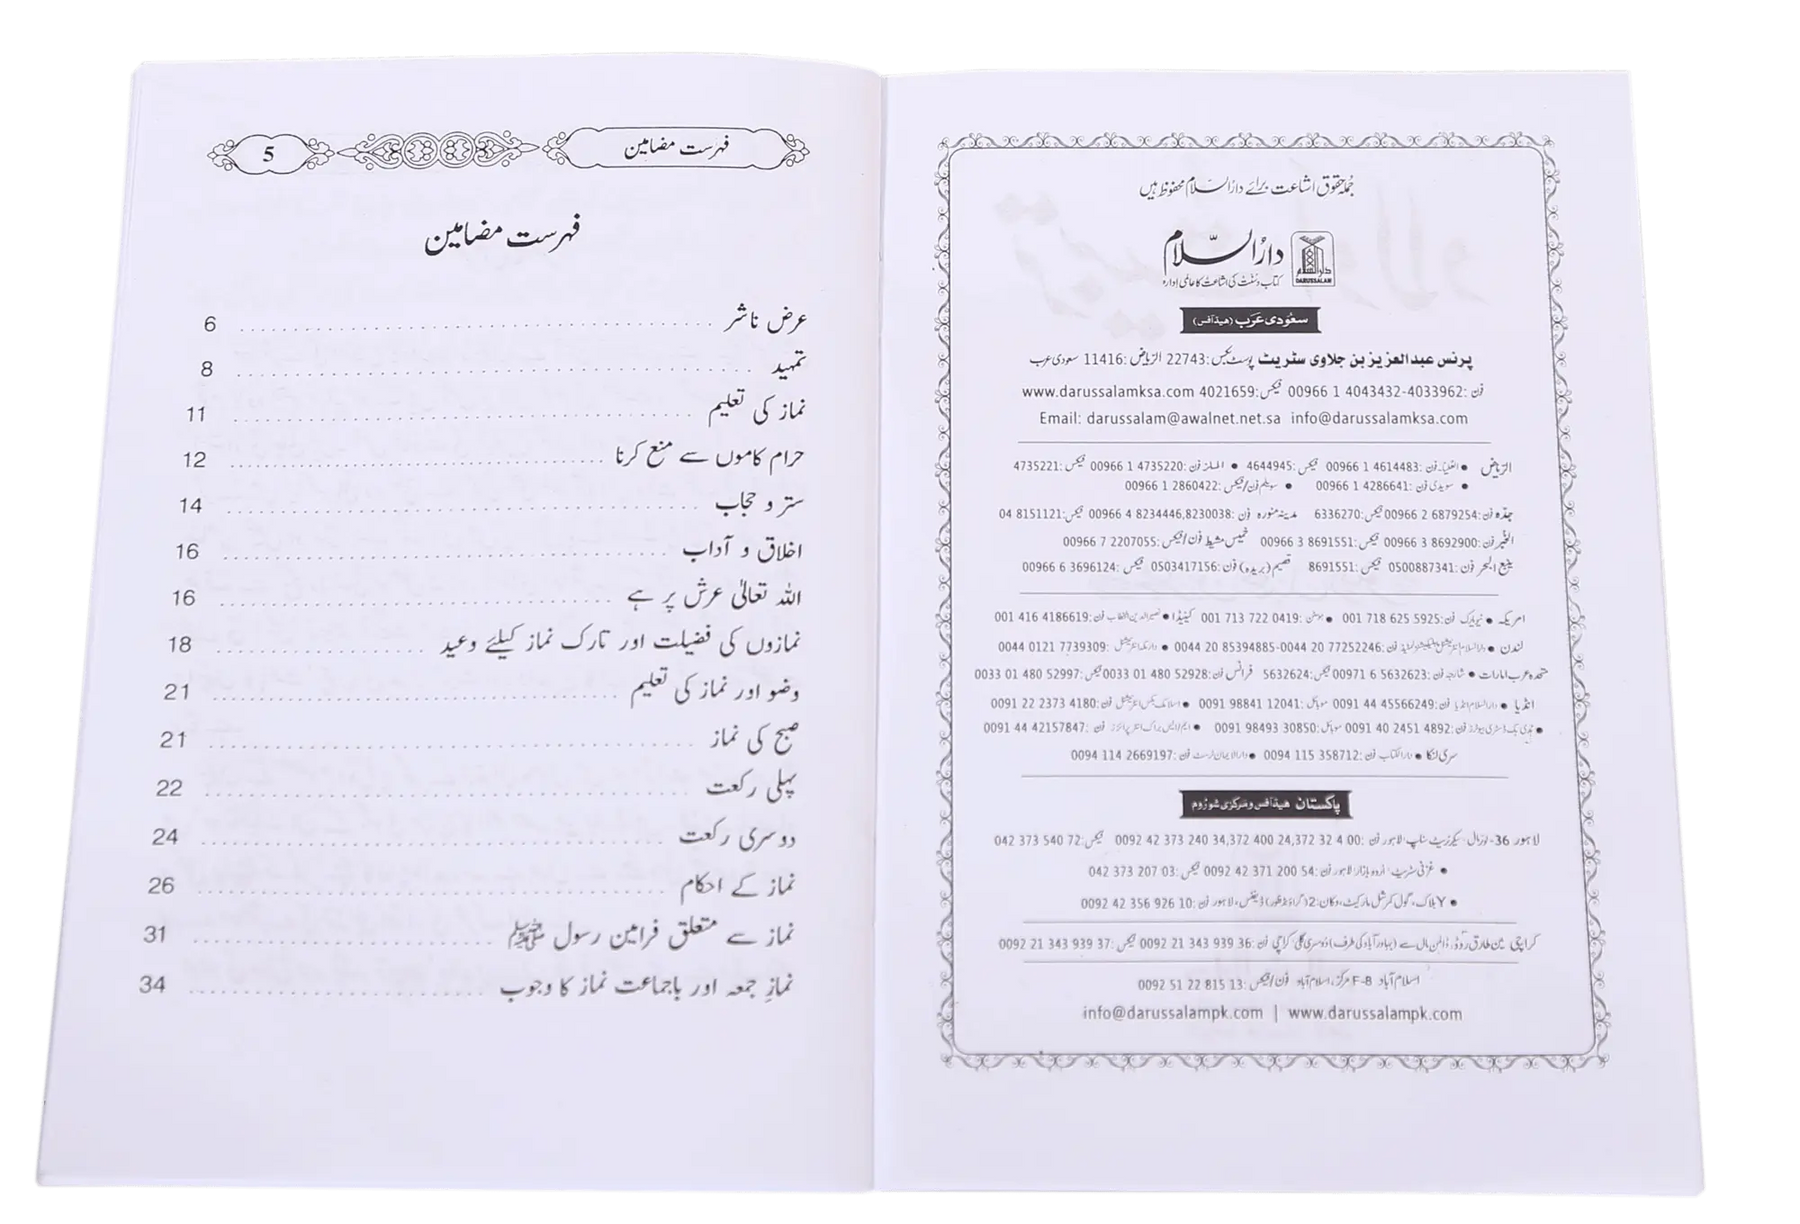 جملہ حقوق اشاعت برائے دارالسلام محفوظ ہیں
دارالسلام
DARUSSALAM
کتاب و سنت کی اشاعت کا عالمی ادارہ
سعودی عرب (ہیڈ آفس)
پرنس عبدالعزیز بن جلاوی سٹریٹ پوسٹ بکس: 22743 الریاض: 11416 سعودی عرب
فون: 00966 1 4043432-4033962 فیکس: 4021659 www.darussalamksa.com
Email: darussalam@awalnet.net.sa info@darussalamksa.com
الریاض • العلیا۔ فون: 00966 1 4614483 فیکس: 4644945 • الملز فون: 00966 1 4735220 فیکس: 4735221
• سویدی فون: 00966 1 4286641 • سویلم فون/فیکس: 00966 1 2860422
جدہ فون: 00966 2 6879254 فیکس: 6336270 مدینہ منورہ فون: 00966 4 8234446,8230038 فیکس: 04 8151121
الخبر فون: 00966 3 8692900 فیکس: 00966 3 8691551 خمیس مشیط فون/فیکس: 00966 7 2207055
ینبع البحر فون: 0500887341 فیکس: 8691551 قصیم (بریدہ) فون: 0503417156 فیکس: 00966 6 3696124
امریکہ • نیویارک فون: 001 718 625 5925 • ہوسٹن: 001 713 722 0419 کینیڈا • نصیرالدین الخطاب فون: 001 416 4186619
لندن • دارالسلام انٹرنیشنل پبلیکیشنز لمیٹڈ فون: 0044 20 77252246-0044 20 85394885 • دارمکہ انٹرنیشنل: 0044 0121 7739309
متحدہ عرب امارات • شارجہ فون: 00971 6 5632623 فیکس: 5632624 فرانس فون: 0033 01 480 52928 فیکس: 0033 01 480 52997
انڈیا • دارالسلام انڈیا فون: 0091 44 45566249 موبائل: 0091 98841 12041 • اسلامک بکس انٹرنیشنل فون: 0091 22 2373 4180
• ہدیٰ بک ڈسٹری بیوٹرز فون: 0091 40 2451 4892 موبائل: 0091 98493 30850 • فون: 0091 44 42157847
سری لنکا • دارالکتاب فون: 0094 115 358712 • دارالایمان ٹرسٹ فون: 0094 114 2669197
پاکستان ہیڈ آفس و مرکزی شوروم
لاہور 36- لوئر مال، سیکرٹریٹ سٹاپ، لاہور فون: 0092 42 373 240 34,372 400 24,372 32 4 00 فیکس: 042 373 540 72
• غزنی سٹریٹ، اردو بازار، لاہور فون: 0092 42 371 200 54 فیکس: 042 373 207 03
• Y بلاک، گول کمرشل مارکیٹ، دکان: 2 (گراؤنڈ فلور) ڈیفنس، لاہور فون: 0092 42 356 926 10
کراچی مین طارق روڈ، ڈالمن مال سے (بہادر آباد کی طرف) دوسری گلی کراچی فون: 0092 21 343 939 36 فیکس: 0092 21 343 939 37
اسلام آباد F-8 مرکز، اسلام آباد فون/فیکس: 0092 51 22 815 13
info@darussalampk.com | www.darussalampk.com
فہرست مضامین 5
فہرست مضامین
عرض ناشر 6
تمہید 8
نماز کی تعلیم 11
حرام کاموں سے منع کرنا 12
ستر و حجاب 14
اخلاق و آداب 16
اللہ تعالیٰ عرش پر ہے 16
نمازوں کی فضیلت اور تارک نماز کیلئے وعید 18
وضو اور نماز کی تعلیم 21
صبح کی نماز 21
پہلی رکعت 22
دوسری رکعت 24
نماز کے احکام 26
نماز سے متعلق فرامین رسول ﷺ 31
نمازِ جمعہ اور باجماعت نماز کا وجوب 34